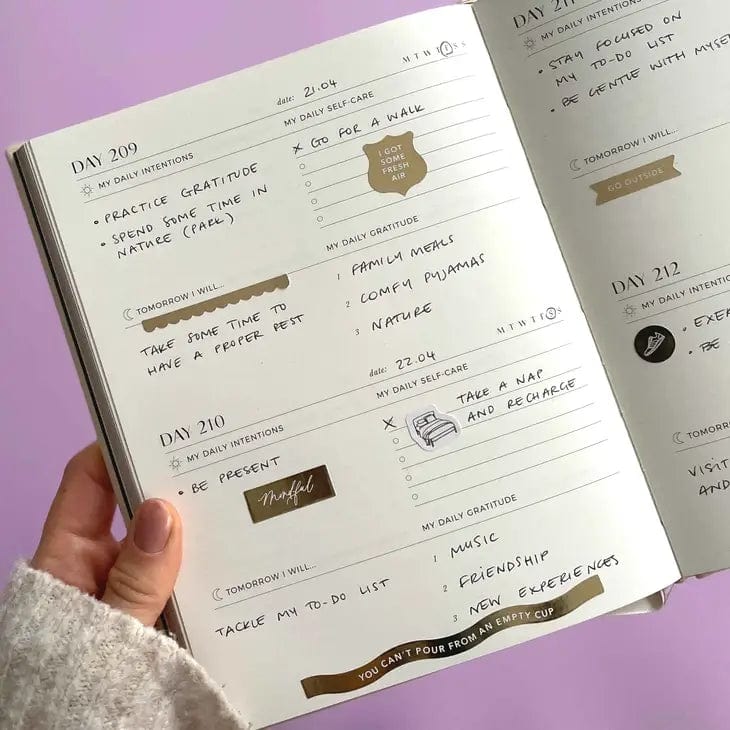 DAY 209
date: 21.04
M T W T F S S
MY DAILY INTENTIONS
• PRACTICE GRATITUDE
• SPEND SOME TIME IN
NATURE (PARK)
MY DAILY SELF-CARE
X GO FOR A WALK
I GOT
SOME
FRESH
AIR
TOMORROW I WILL...
TAKE SOME TIME TO
HAVE A PROPER REST
MY DAILY GRATITUDE
1 FAMILY MEALS
2 COMFY PYJAMAS
3 NATURE
DAY 210
date: 22.04
M T W T F S S
MY DAILY INTENTIONS
• BE PRESENT
Mindful
MY DAILY SELF-CARE
X TAKE A NAP
AND RECHARGE
TOMORROW I WILL...
TACKLE MY TO-DO LIST
MY DAILY GRATITUDE
1 MUSIC
2 FRIENDSHIP
3 NEW EXPERIENCES
YOU CAN'T POUR FROM AN EMPTY CUP
DAY 211
MY DAILY INTENTIONS
• STAY FOCUSED ON
MY TO-DO LIST
• BE GENTLE WITH MYSE
TOMORROW I WILL...
GO OUTSIDE
DAY 212
MY DAILY INTENTI
• EXE
• BE
TOMORRO
VISIT
AND